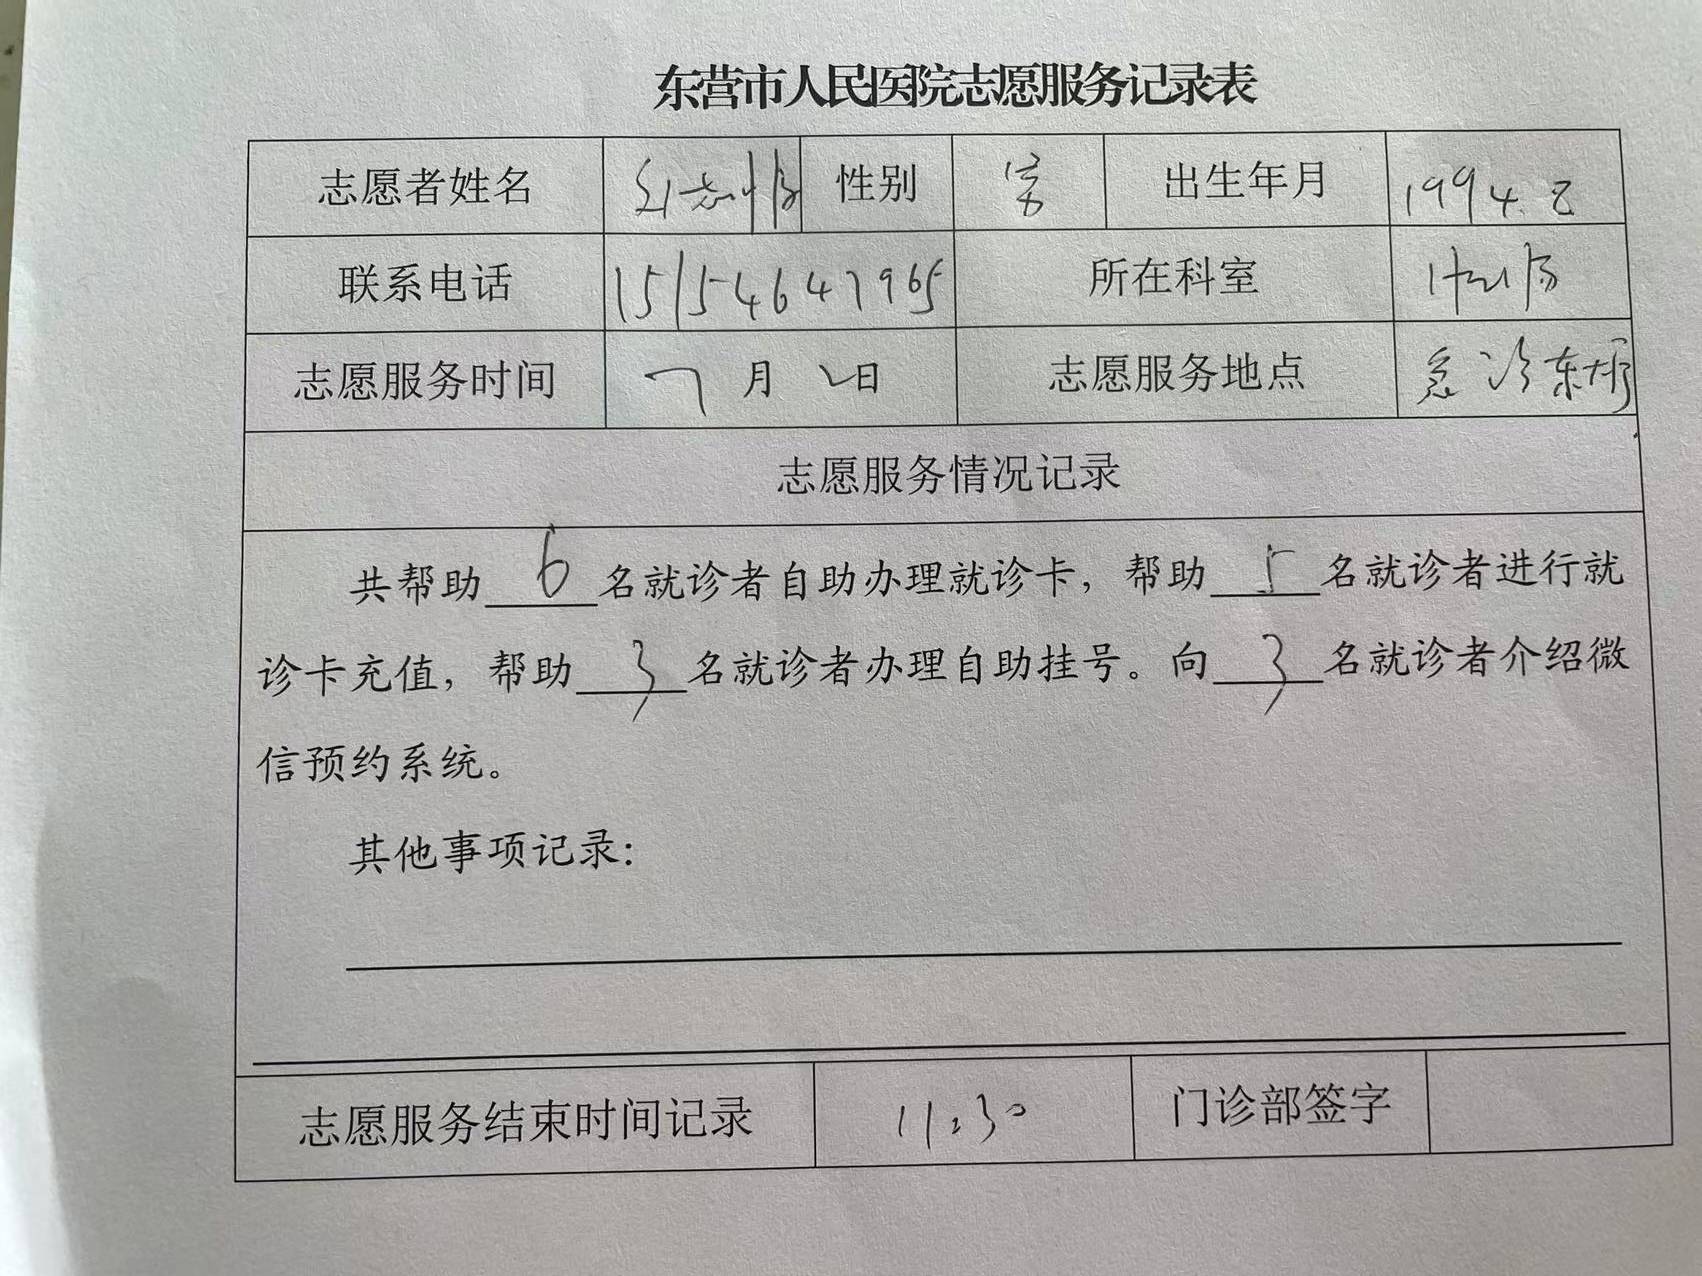 东营市人民医院志愿服务记录表
志愿者姓名 性别 男 出生年月 1994.8
联系电话 15154647965 所在科室
志愿服务时间 7月2日 志愿服务地点 急诊东大厅
志愿服务情况记录
共帮助6名就诊者自助办理就诊卡，帮助5名就诊者进行就
诊卡充值，帮助3名就诊者办理自助挂号。向3名就诊者介绍微
信预约系统。
其他事项记录：
志愿服务结束时间记录 11:30 门诊部签字